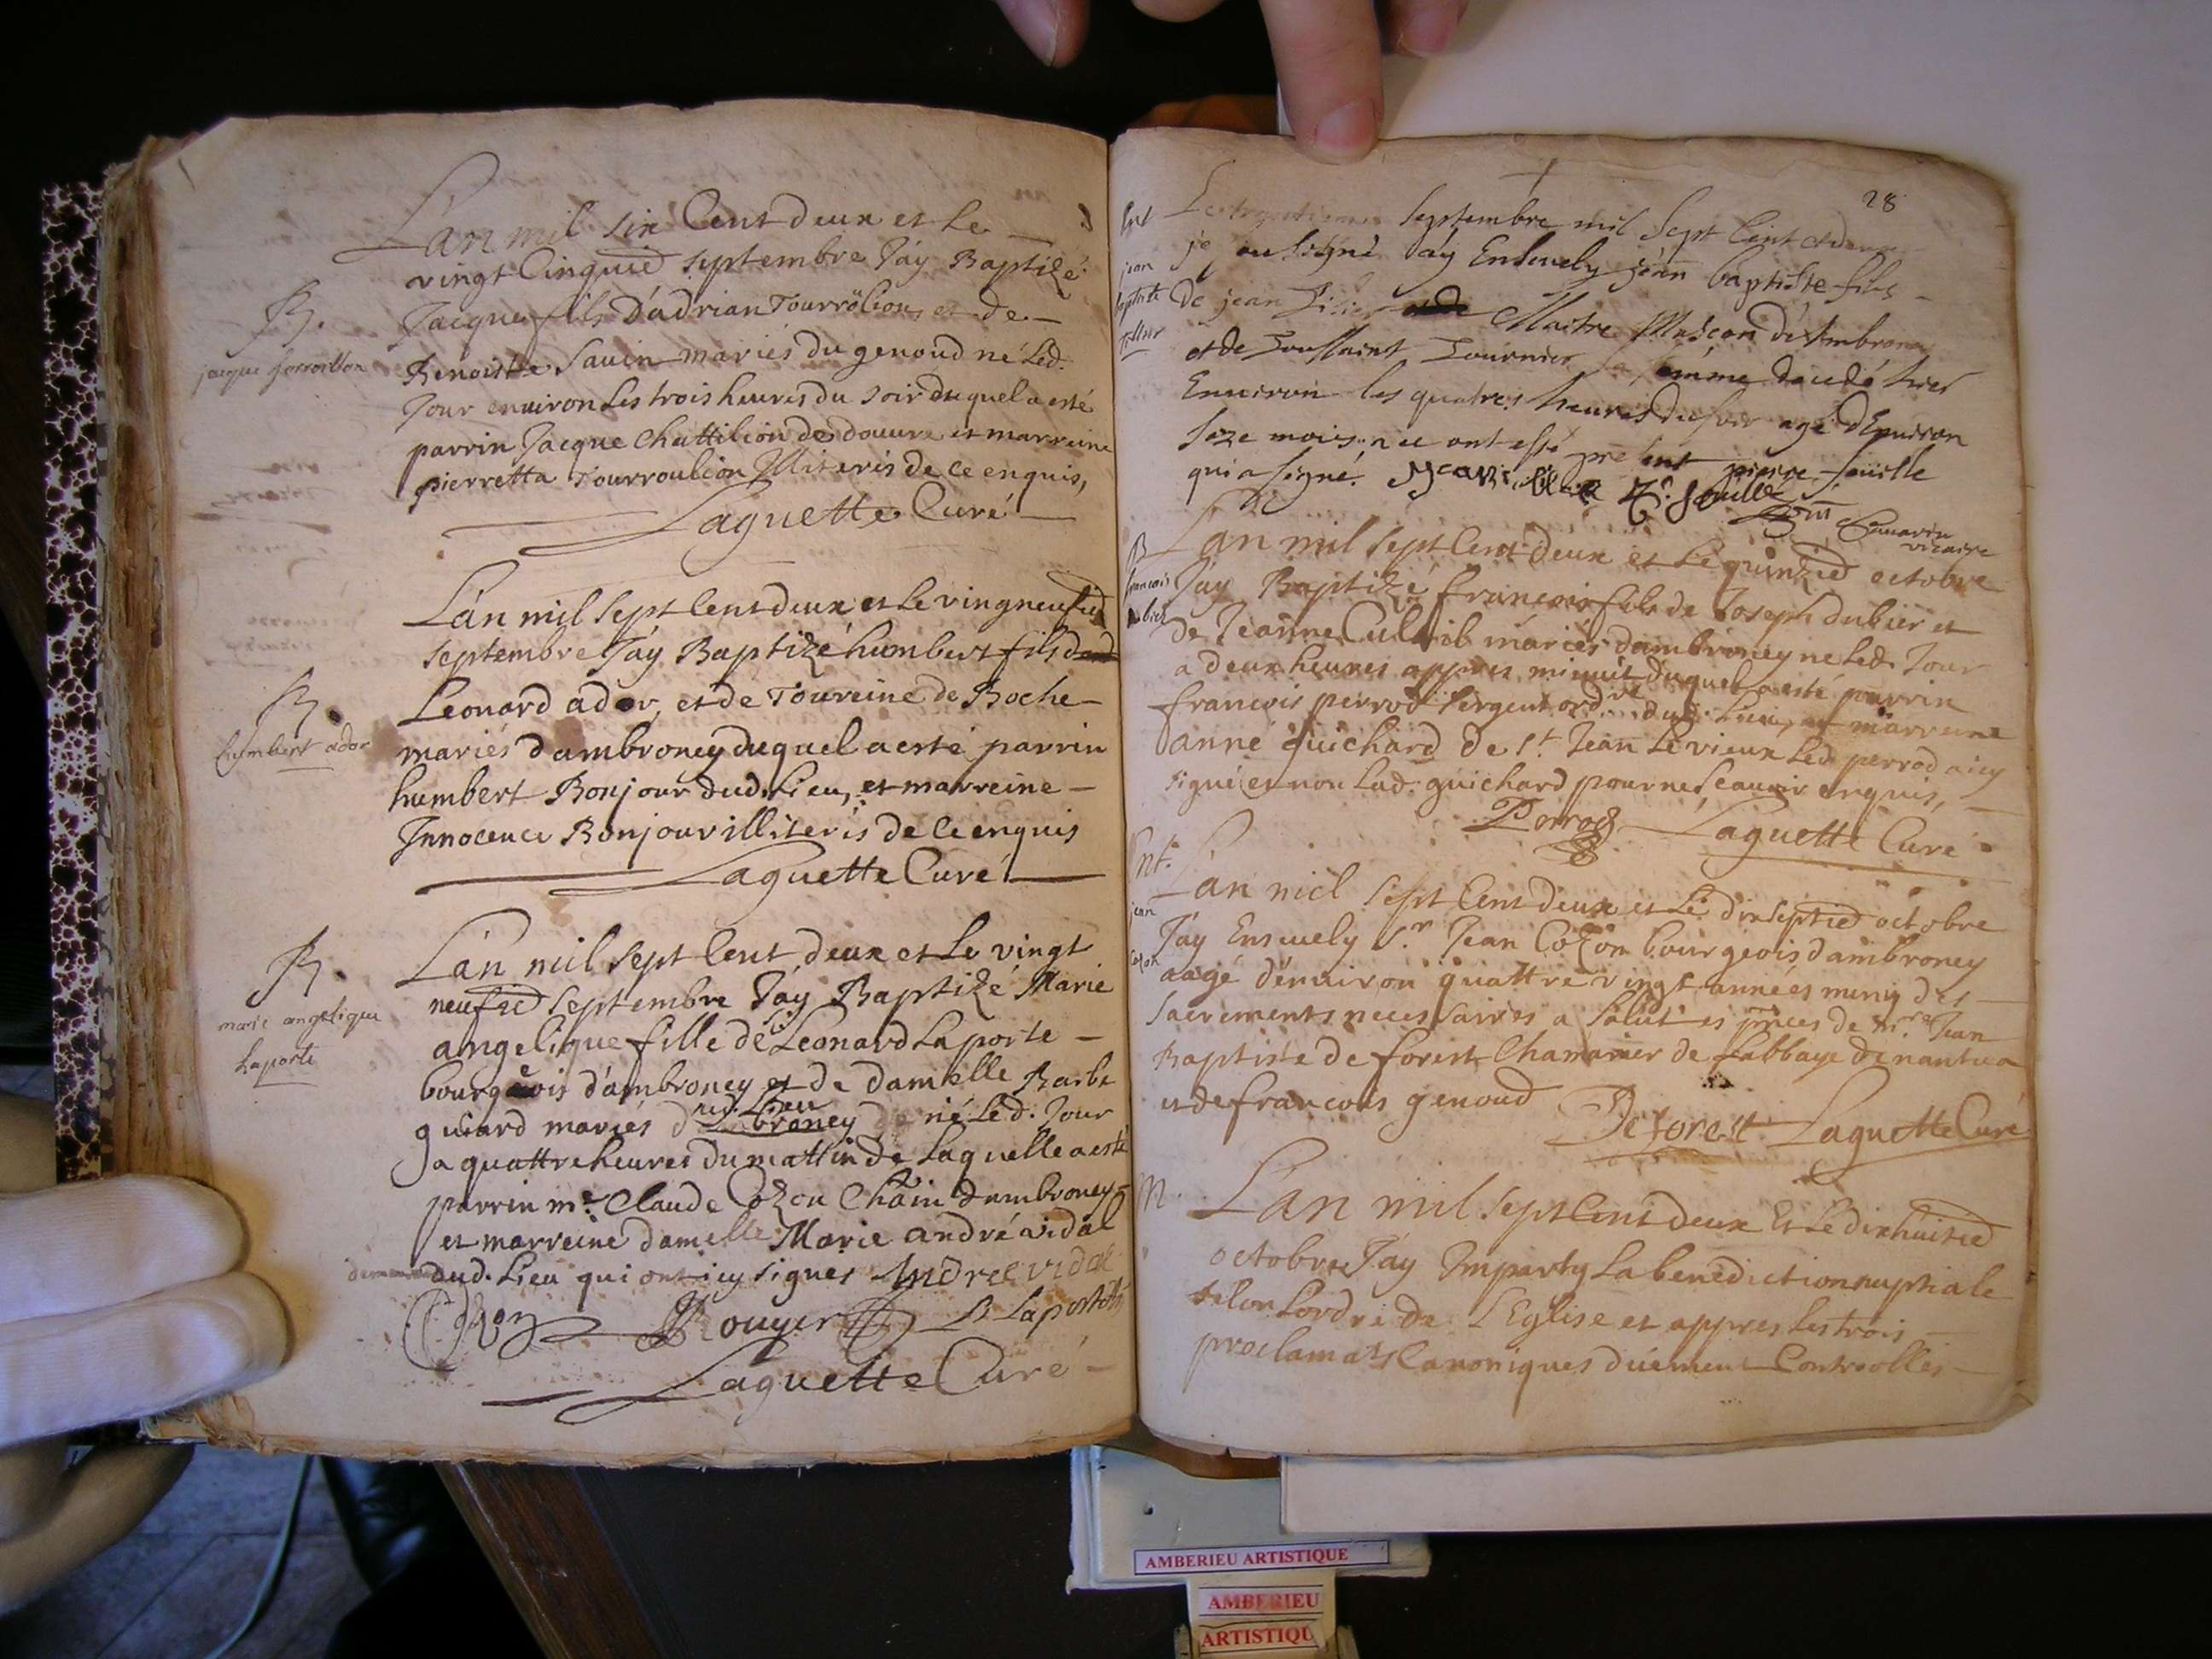 L'an mil six Cent deux et Le
vingt Cinquie septembre J'ay Baptizé
Jacque fils D'adrian Tourrolion et de
Benoiste Sauin mariés du genoud né Led.
Jour enuiron Les trois heures du soir duquel a esté
parrin Jacque Chattilion de douure et marreine
pierretta Tourroulion Illiteris de ce enquis,
Laguette Curé
B.
jacque
L'an mil sept Cent deux et Le vingneufie
septembre J'ay Baptizé humbert fils de
Leonard ador, et de Toureine de Boche
mariés d'ambroney duquel a esté parrin
humbert Bonjour dud. Lieu, et marreine
Innocence Bonjour illiteris de Ce enquis
Laguette Curé
B.
humbert ador
L'an mil sept Cent deux et Le vingt
neufie septembre J'ay Baptizé Marie
angelique fille de Sr Leonard Laporte
bourgeois d'ambroney et de damelle Barbe
guiard mariés dud. Lieu né Led. Jour
a quattre heures du mattin de Laquelle a esté
parrin mr. Claude Cozon Chãin dambroney
et marreine damelle Marie andré vidal
dud. Lieu qui ont icy signes Andree vidal
Cozon Rouyer L Laporte
Laguette Curé
B.
marie angelique
Laporte
28
septembre mil Sept Cent et deux
je sousigné Jay Enseuely jean baptiste fils
de jean Maitre Masson d'Ambroney
et de Toussaint Tournier sa femme décédé hier
Enuiron les quatres heures du soir agé d'Enuiron
seze mois, a ce ont esté present pierre fouille
qui a signé. P. fouille
vicaire
Ent
jean
baptiste
L'an mil sept Cent deux et Le quinzie octobre
J'ay Baptizé francois fils de Joseph dubier et
de Jeanne mariés d'ambroney né Led. Jour
a deux heures appres minuit duquel a esté parrin
francois perrod sergent ordre dud. Lieu, et marreine
anne guichard de St Jean Le vieux Led. perrod a icy
signé et non Lad. guichard pour ne scauoir enquis,
Perrod Laguette Curé
B
francois
L'an mil sept Cent deux et Le dixseptie octobre
J'ay Enseuely Sr. Jean Cozon bourgeois d'ambroney
aagé d'enuiron quattre vingt années muny des
sacrements necessaires a salut es pñces de mre Jean
Baptiste de forest Chamarier de l'abbaye de nantua
et de francois genoud
Deforest Laguette Curé
Ent.
jean
cozon
L'an mil sept Cent deux Et Le dixhuitie
octobre J'ay Imparty La benediction nuptiale
selon L'ordre de L'Eglise et appres Les trois
proclamats Canoniques duement Controolles
M.
AMBERIEU ARTISTIQUE
AMBERIEU
ARTISTIQU